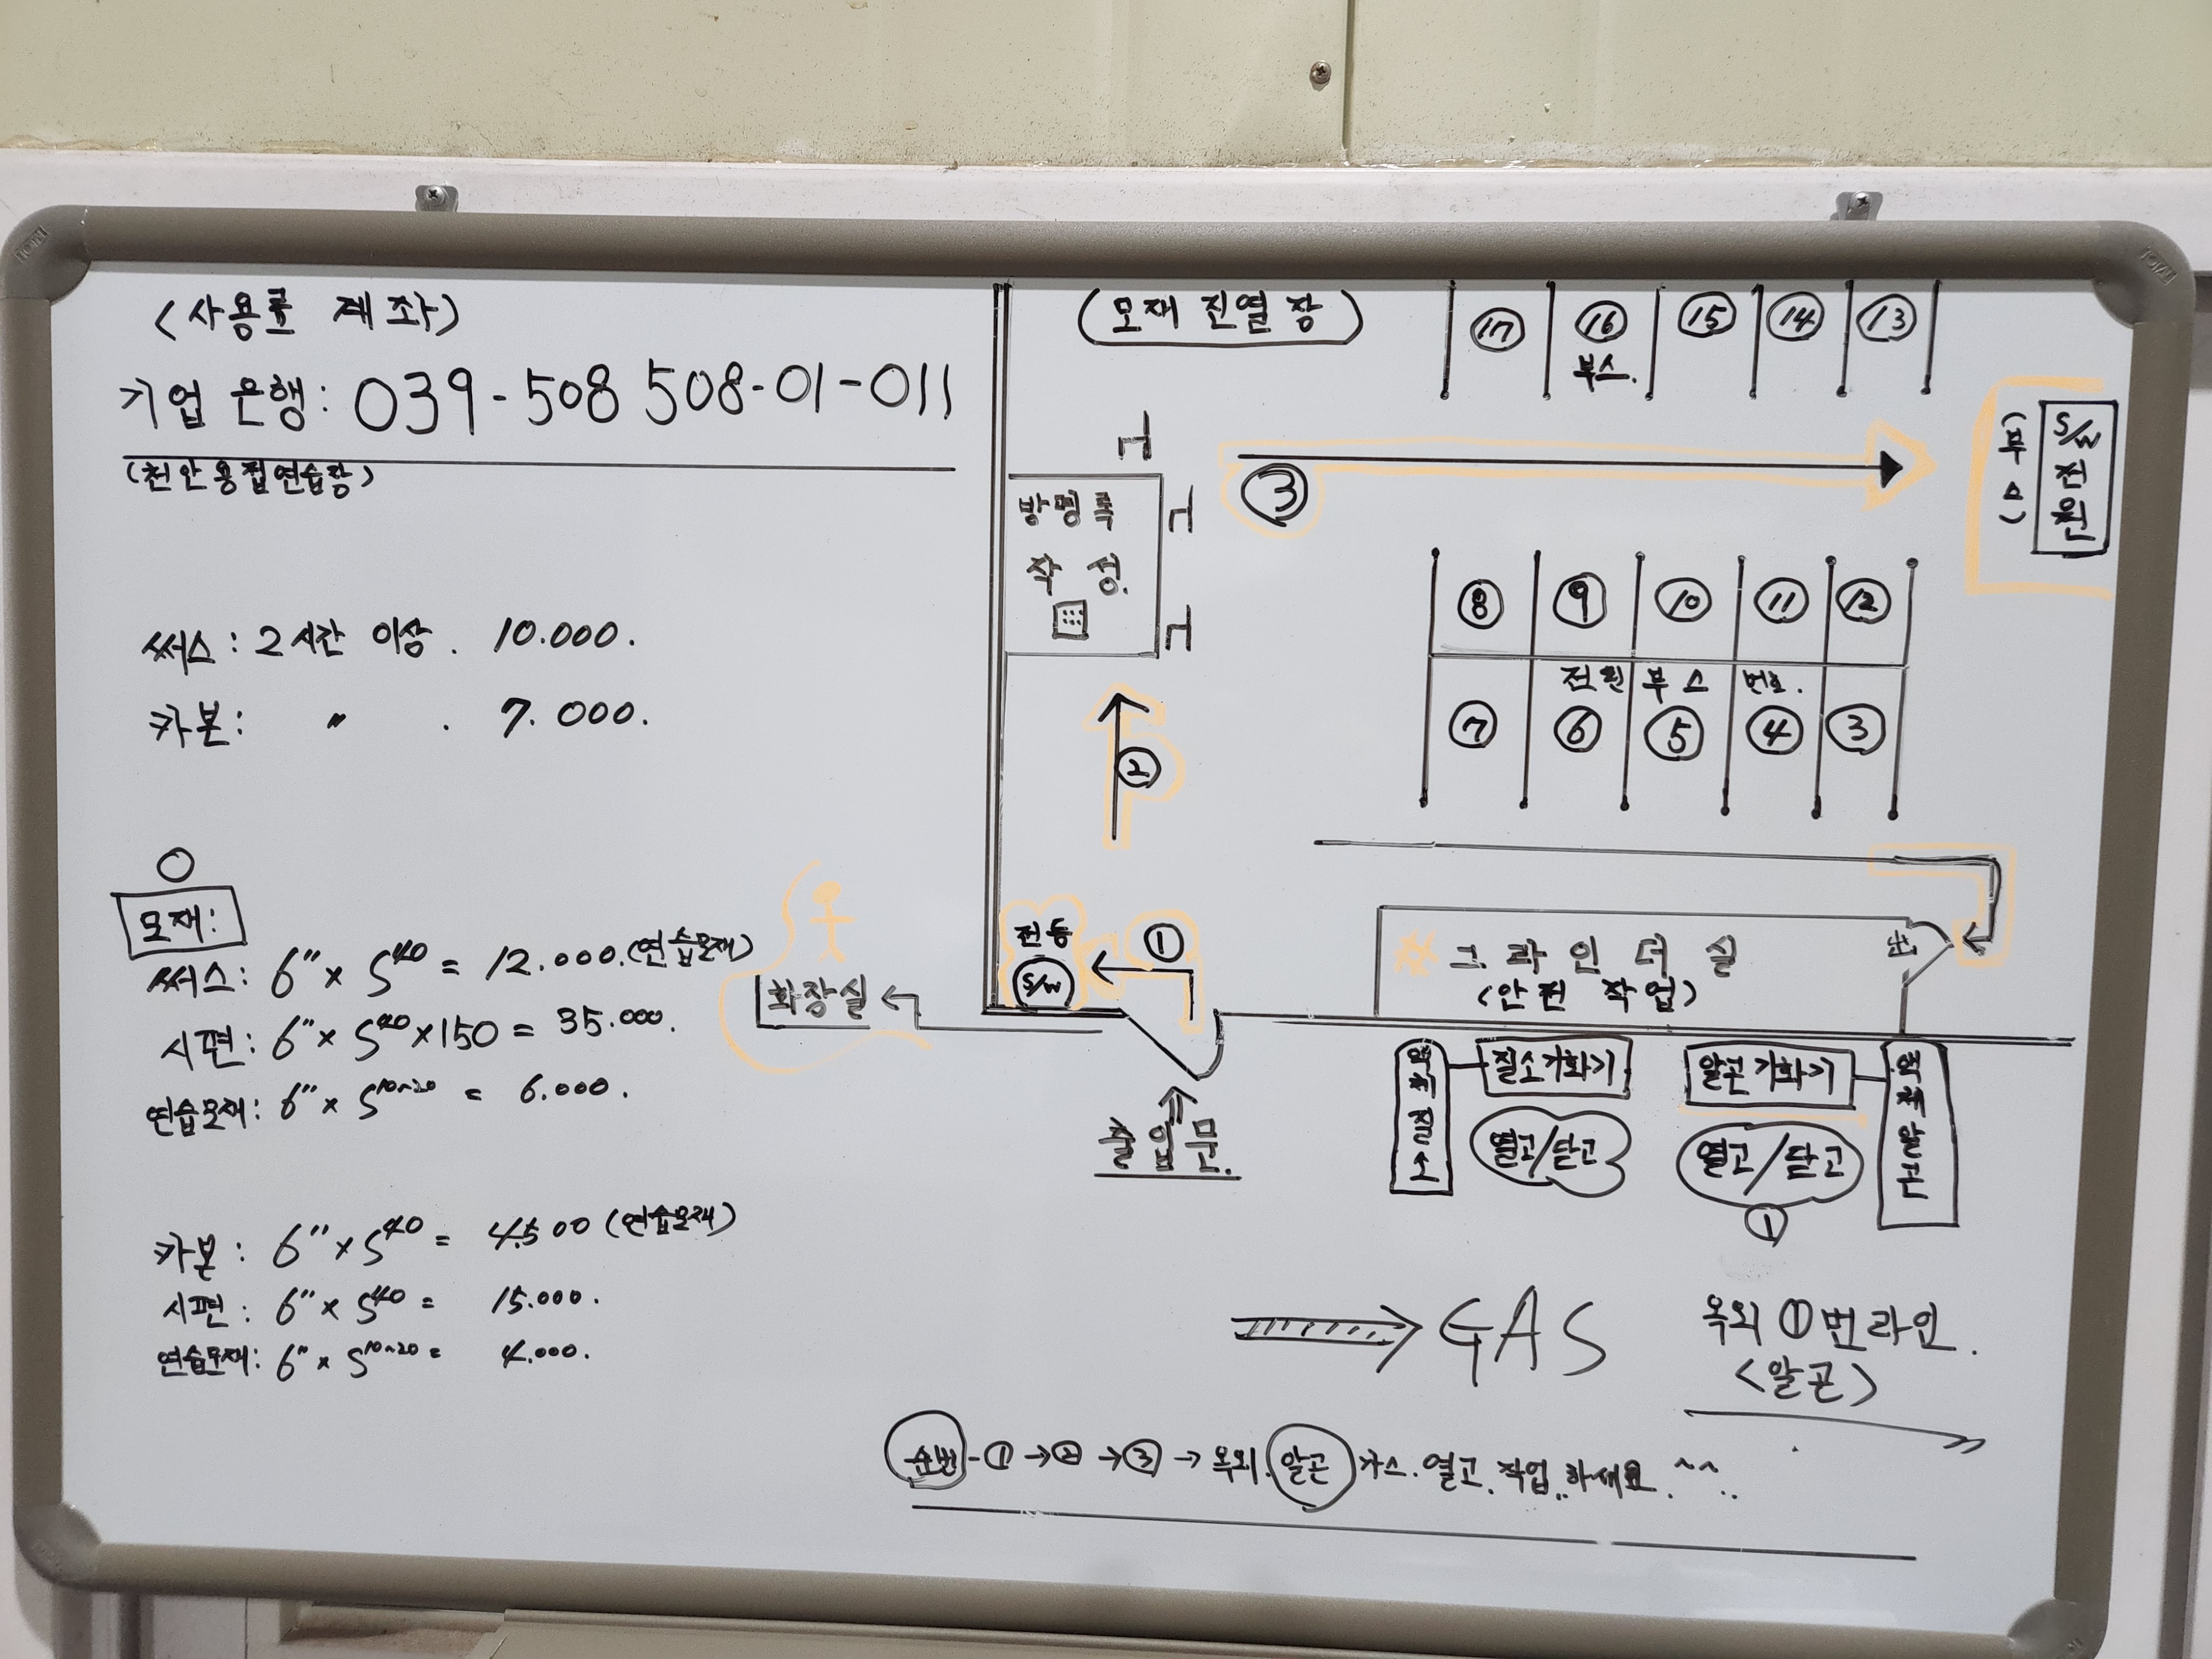 <사용료 계좌>
기업 은행: 039-508 508-01-011
(천안용접연습장)
써스: 2시간 이상. 10.000.
카본: 〃 . 7.000.
모재:
써스: 6" x S40 = 12.000.(연습모재)
시편: 6" x S40 x 150 = 35.000.
연습모재: 6" x S10~20 = 6.000.
카본: 6" x S40 = 4.500 (연습모재)
시편: 6" x S40 = 15.000.
연습모재: 6" x S10~20 = 4.000.
(모재 진열장)
⑰ ⑯ ⑮ ⑭ ⑬
부스.
③
(부스)
S/W 전원
방명록
작성.
⑧ ⑨ ⑩ ⑪ ⑫
전원 부스 번호.
⑦ ⑥ ⑤ ④ ③
②
전등
S/W
①
화장실
그라인더실
(안전 작업)
出
출입문.
액체질소
질소기화기
열고/닫고
알곤기화기
열고/닫고
①
액체알곤
GAS
옥외 ①번라인.
<알곤>
순번 - ① → ② → ③ → 옥외. 알곤 가스. 열고. 작업.. 하세요. ^^..